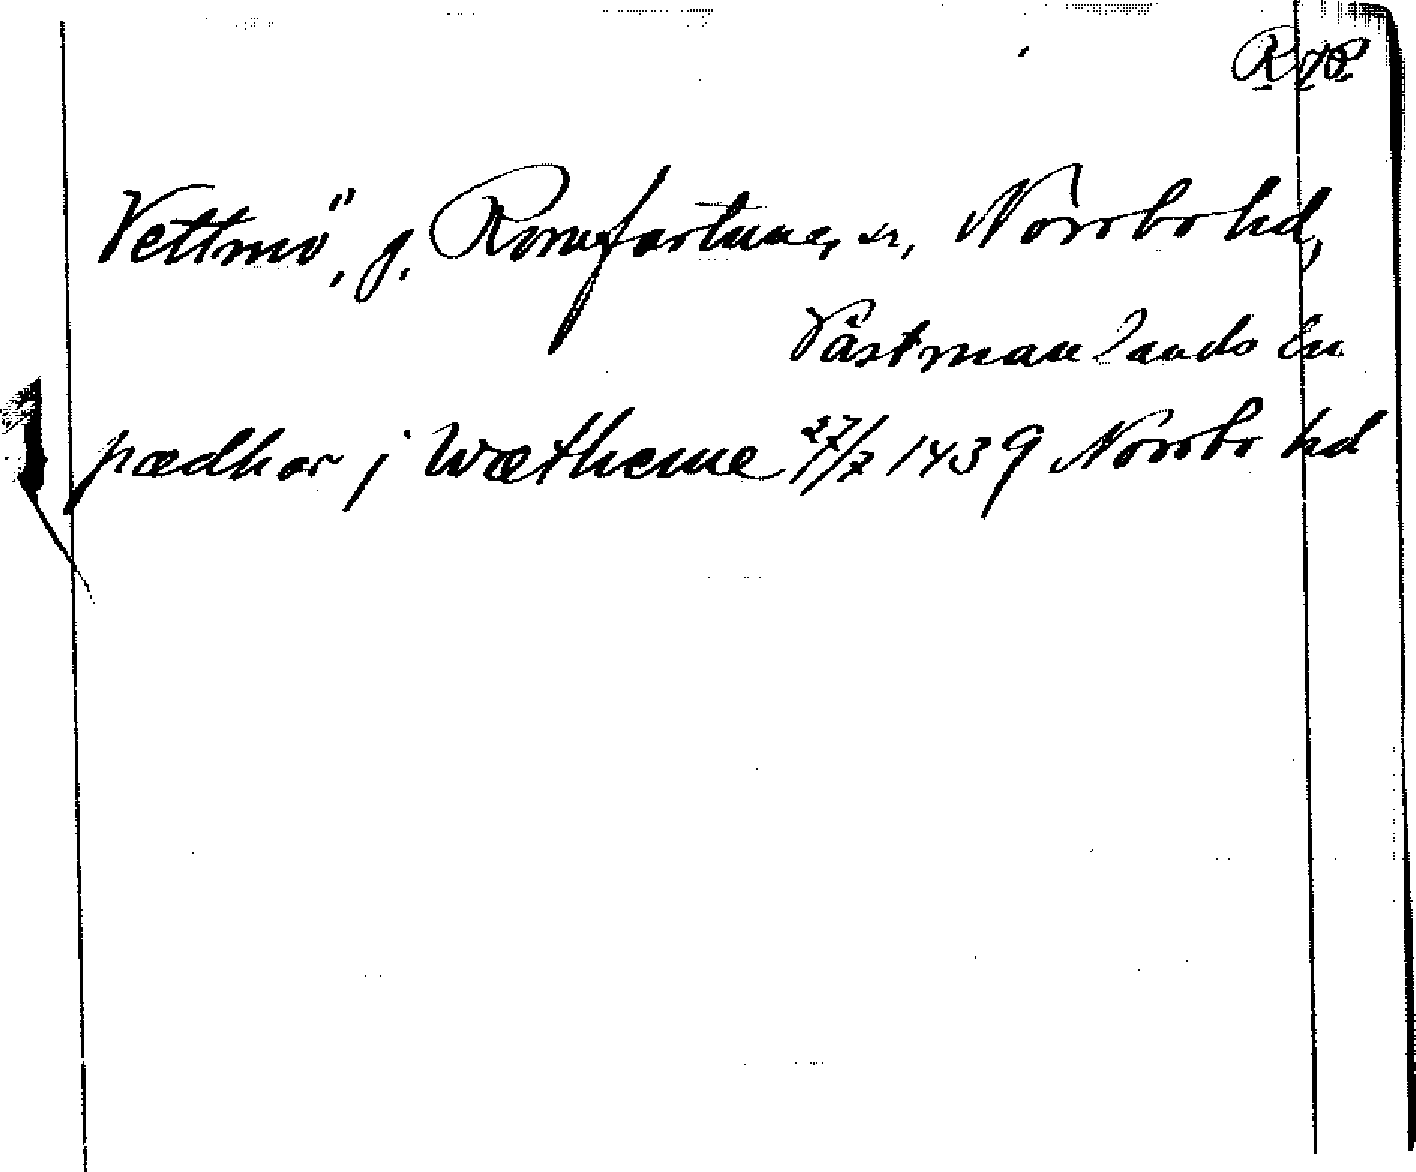 RAP
Vettmö, g. Romfartuna, sn, Norrbo hd,
Västmanlands län
pædhar j Wætheme 27/7 1439 Norrbo hd